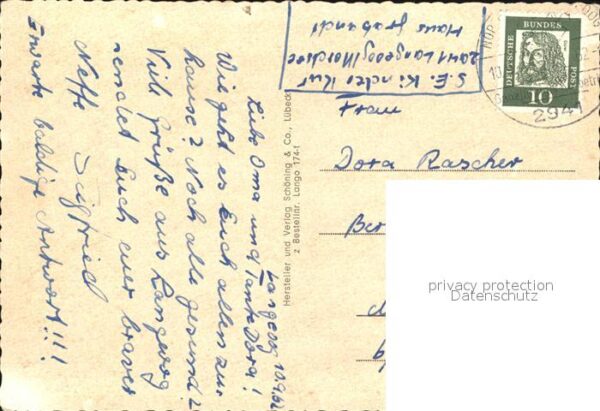 S. E. Kinder Kur
2941 Langeoog/Nordsee
Haus
DEUTSCHE BUNDES POST
10
2941
Frau
Dora Rascher
Ber
privacy protection
Datenschutz
Hersteller und Verlag Schöning & Co., Lübeck
z Bestellnr. Lango 174-1
Langeoog 10.9.62
Liebe Oma und Tante Dora!
Wie geht es Euch allen zur
hause? Noch alle gesund?
Viele Grüße aus Langeoog
sendet Euch euer braver
Neffe Siegfried
Erwarte baldige Antwort!!!